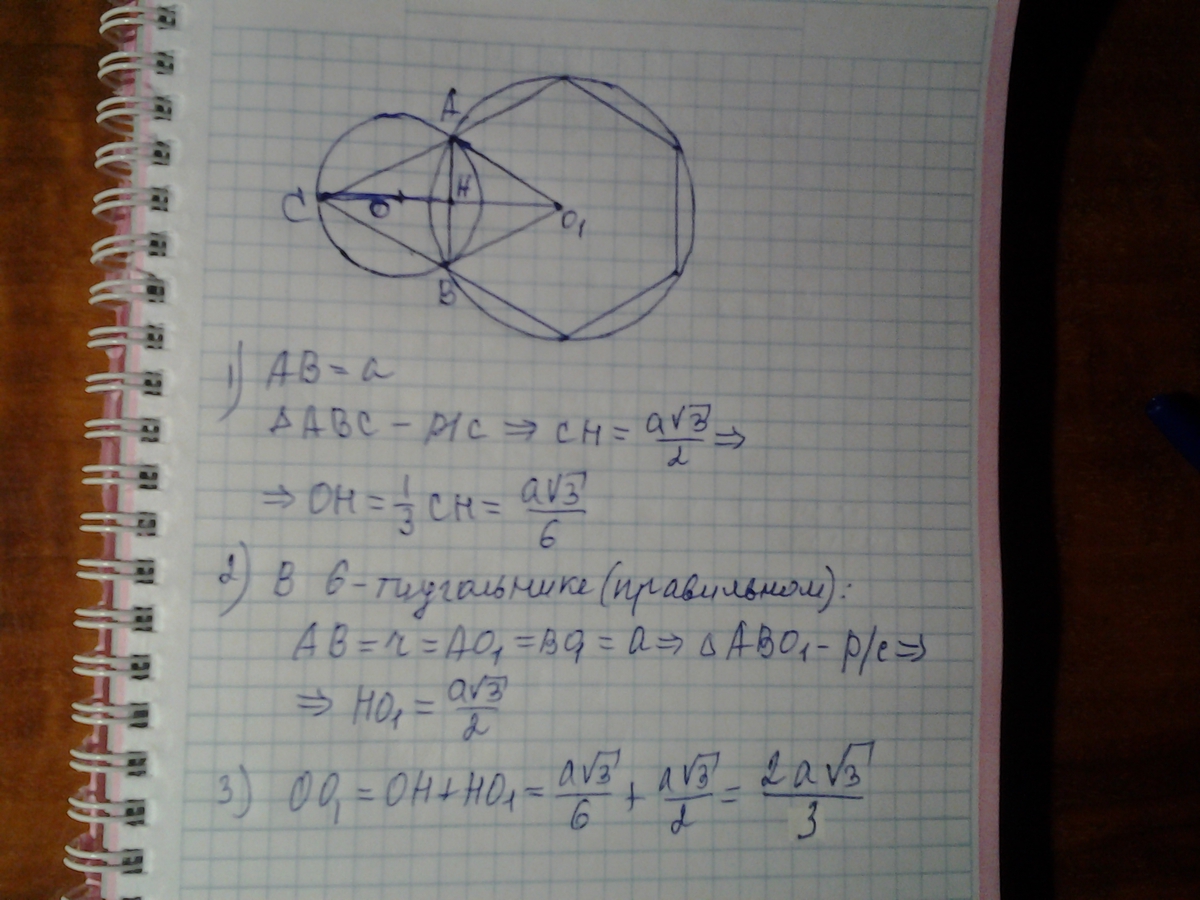 A
H
C
O
O₁
B
1) AB = a
ΔABC – р/с ⇒ CH = a√3/2 ⇒
⇒ OH = 1/3 CH = a√3/6
2) В 6-тиугольнике (правильном):
AB = r = AO₁ = BO₁ = a ⇒ ΔABO₁ – р/с ⇒
⇒ HO₁ = a√3/2
3) OO₁ = OH + HO₁ = a√3/6 + a√3/2 = 2a√3/3